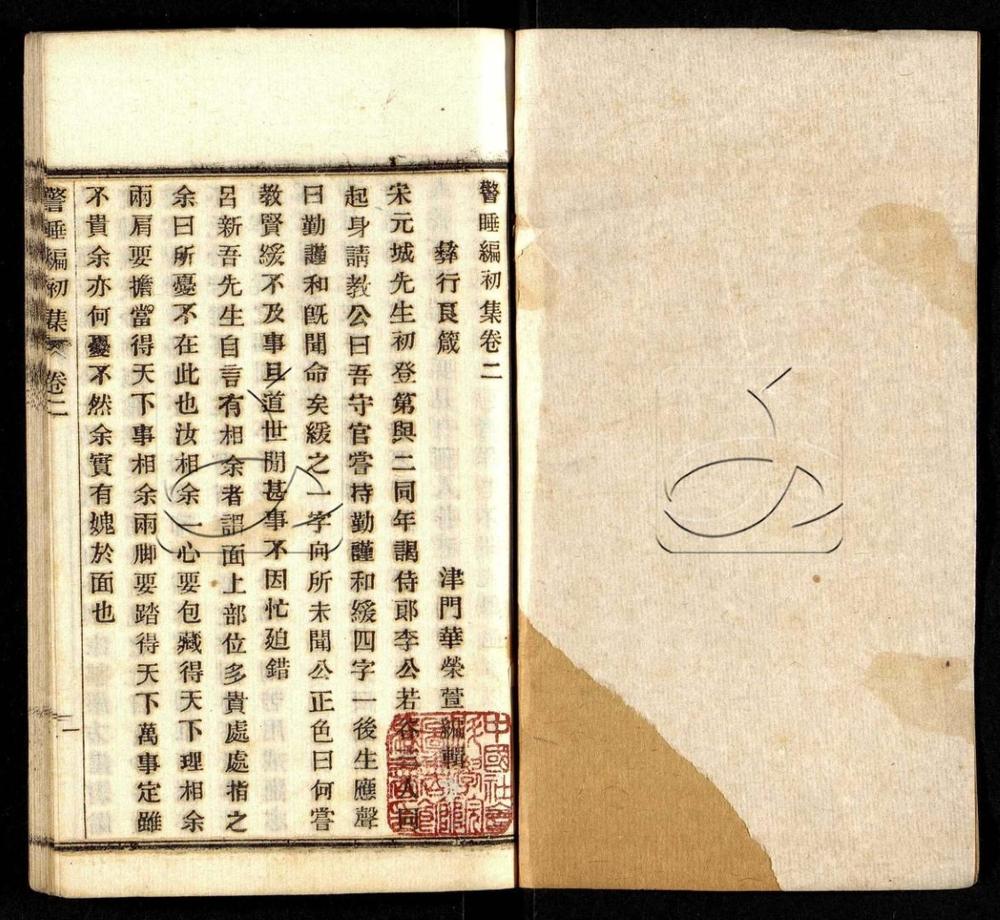 警睡編初集卷二
彝行良箴　津門華榮萱編輯
宋元城先生初登第與二同年謁侍郎李公若谷三人同
起身請教公曰吾守官嘗持勤謹和緩四字一後生應聲
曰勤謹和旣聞命矣緩之一字向所未聞公正色曰何嘗
教賢緩不及事且道世閒甚事不因忙廹錯
呂新吾先生自言有相余者謂面上部位多貴處處指之
余曰所憂不在此也汝相余一心要包藏得天下理相余
兩肩要擔當得天下事相余兩脚要踏得天下萬事定雖
不貴余亦何憂不然余實有媿於面也
警睡編初集　卷二　一